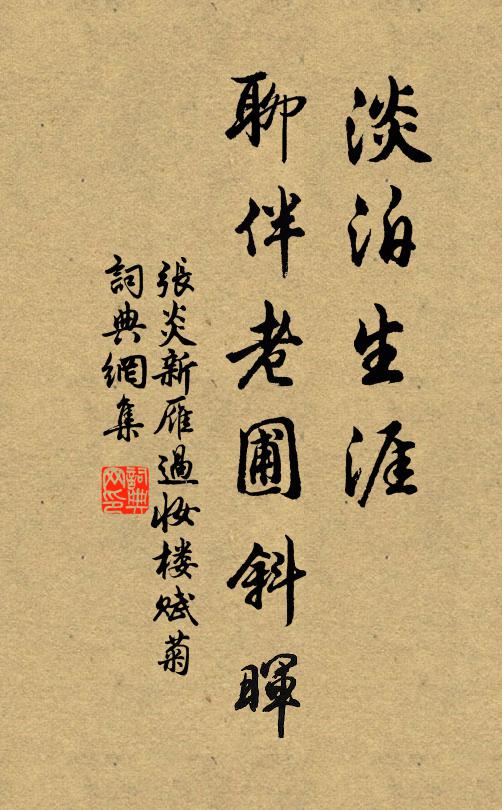 淡泊生涯
聊伴老圃斜暉
張炎新雁過妝楼賦菊
詞典網集
詞典网印